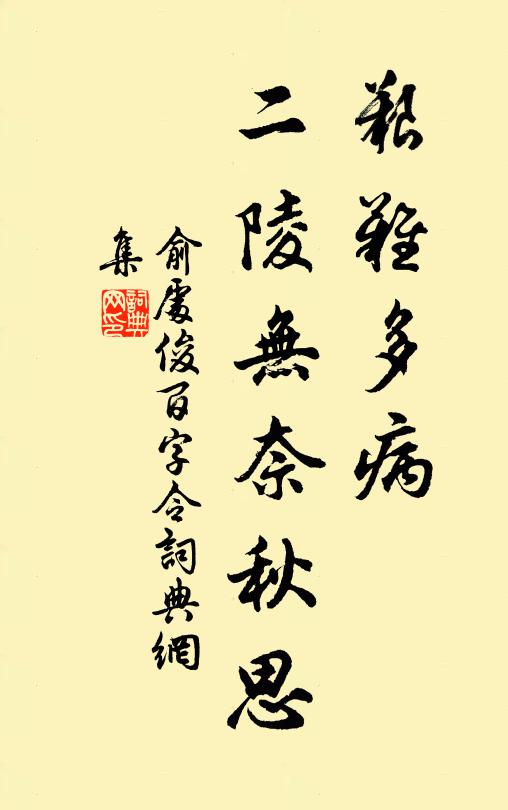 艱難多病
二陵無奈秋思
俞處俊百字令詞典網
集
詞典
网印